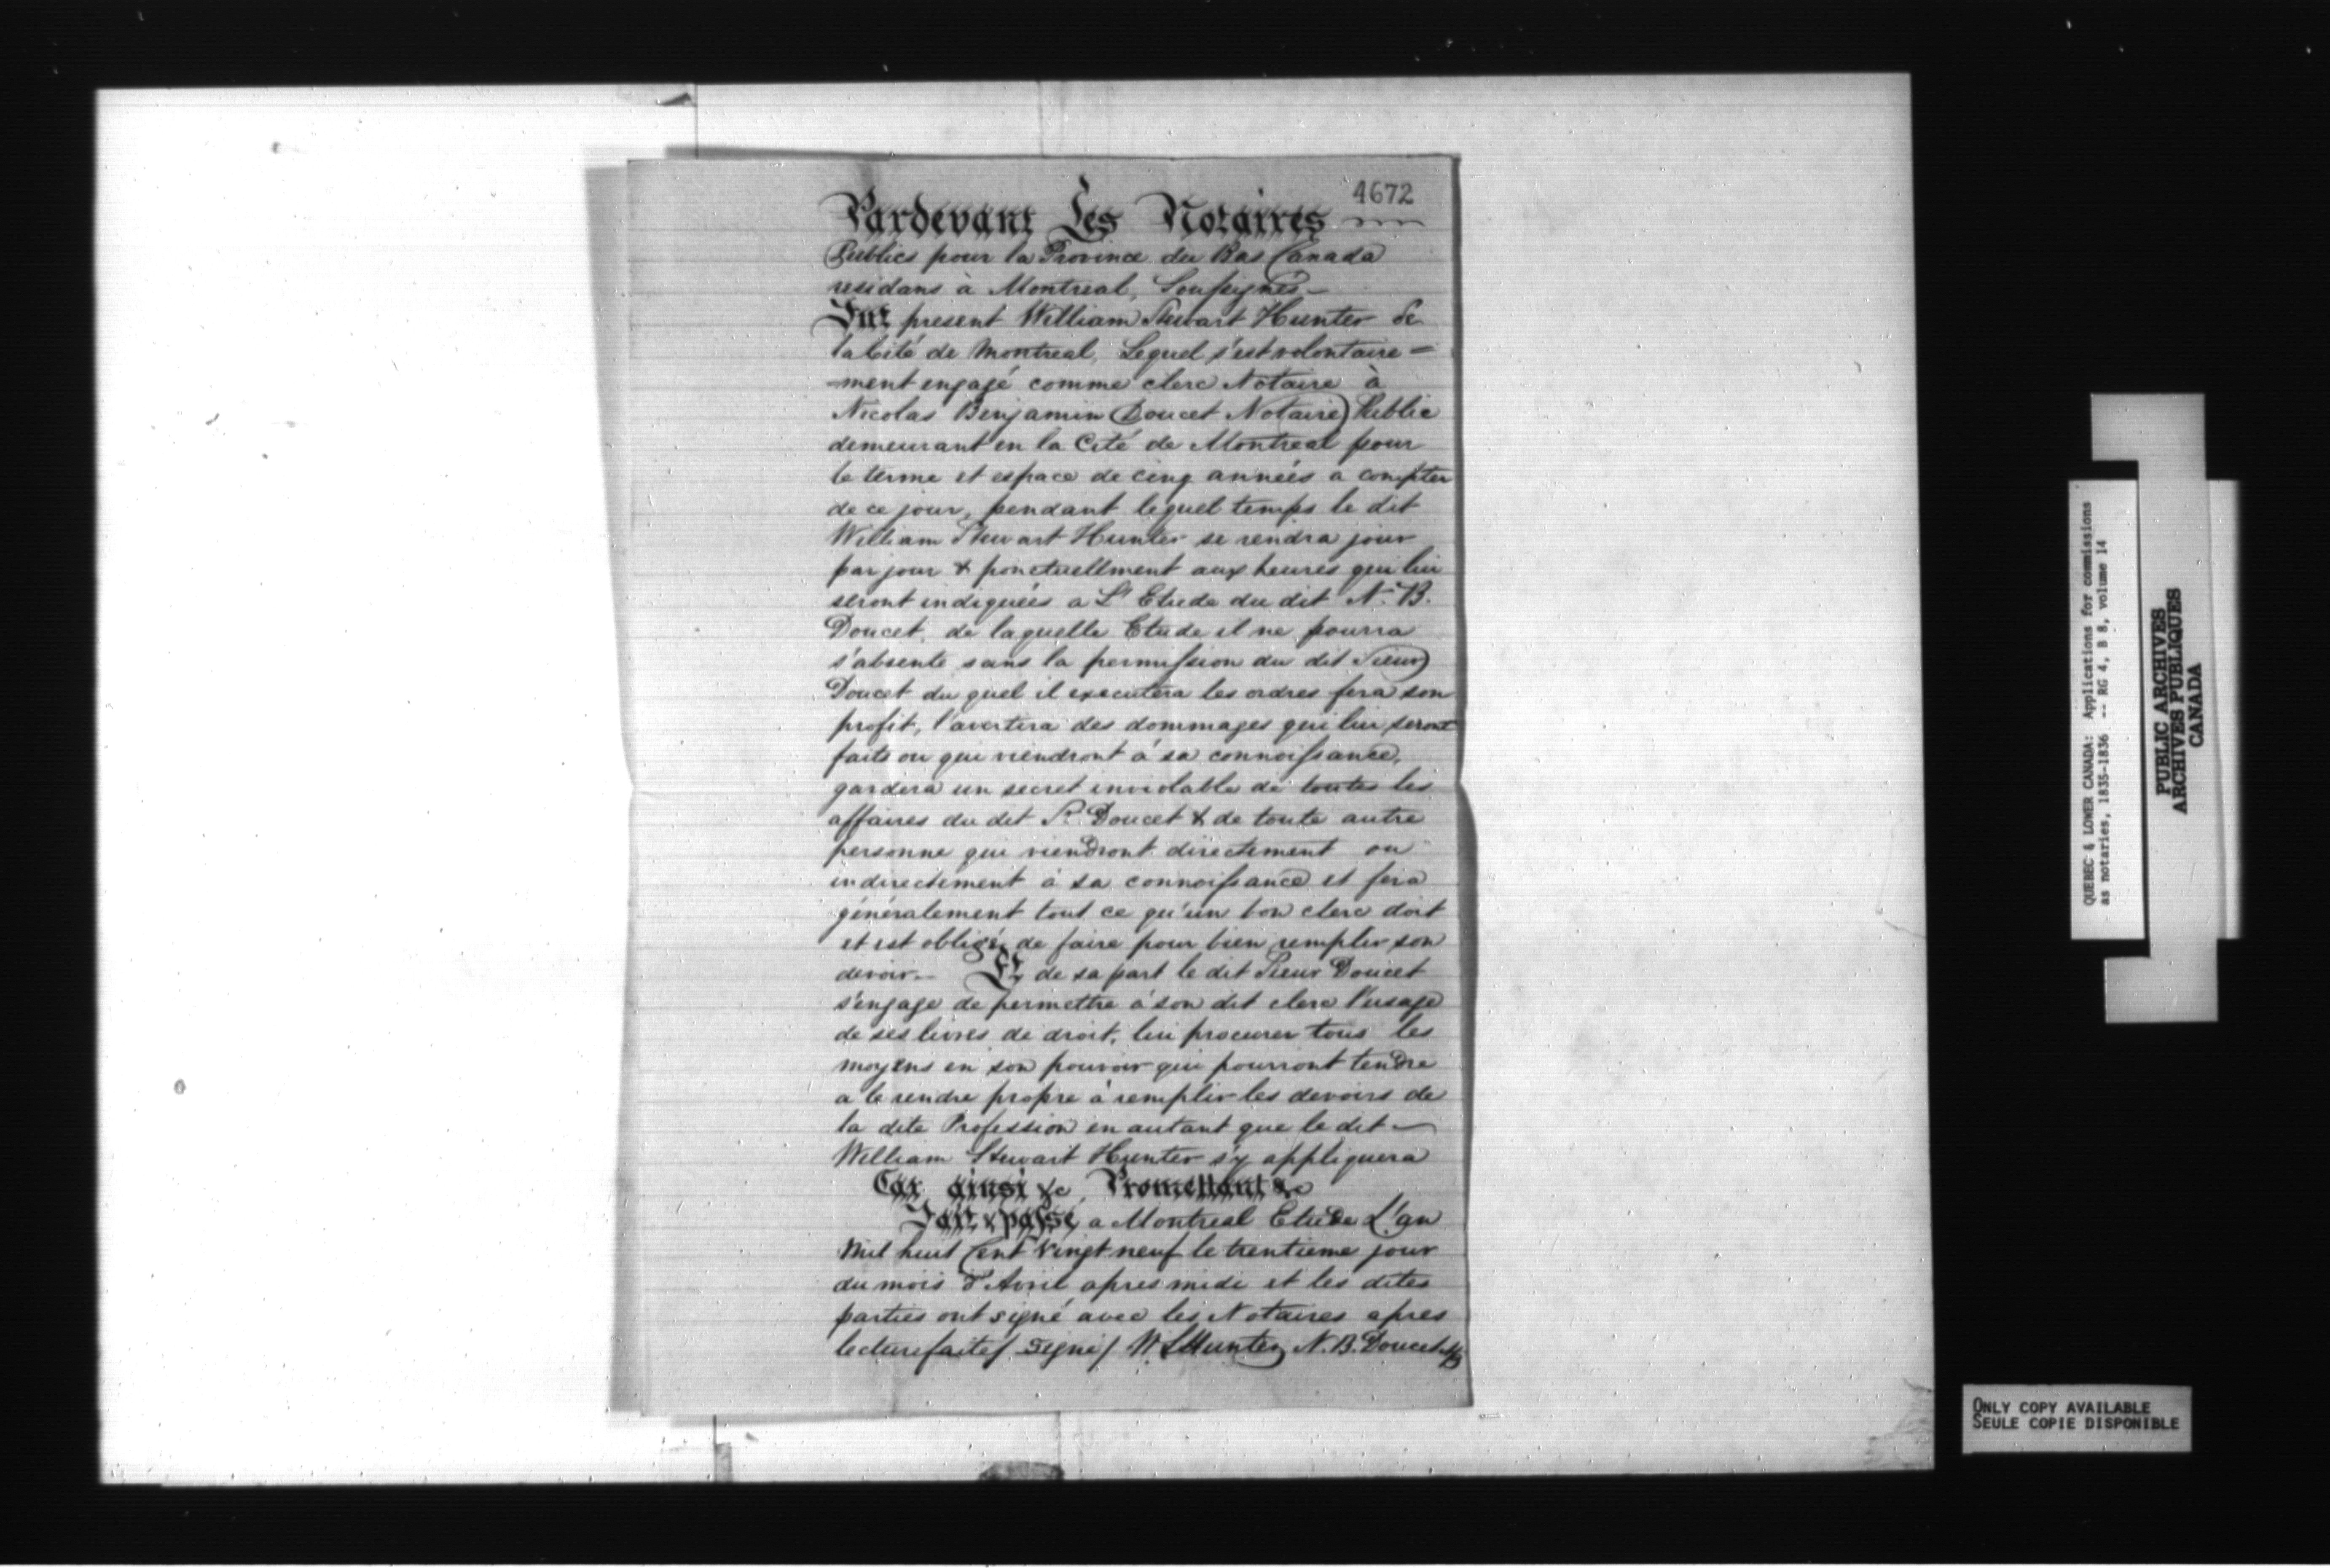 4672
Pardevant Les Notaires
Publics pour la Province du Bas Canada
residans à Montreal, Soussignés —
Fut present William Stewart Hunter de
la Cité de Montreal, Lequel s'est volontaire =
-ment engagé comme clerc Notaire à
Nicolas Benjamin Doucet Notaire Public
demeurant en la Cité de Montreal pour
le terme et espace de cinq années a compter
de ce jour, pendant lequel temps le dit
William Stewart Hunter se rendra jour
par jour & ponctuellment aux heures qui lui
seront indiquées a L'Etude du dit N. B.
Doucet, de laquelle Etude il ne pourra
s'absente sans la permission du dit Sieur
Doucet du quel il executera les ordres fera son
profit, l'avertira des dommages qui lui seront
faits ou qui viendront à sa connoissance,
gardera un secret inviolable de toutes les
affaires du dit Sr. Doucet & de toute autre
personne qui viendront directement ou
indirectement à sa connoissance et fera
généralement tout ce qu'un bon clerc doit
et est obligé de faire pour bien remplir son
devoir — Et de sa part le dit Sieur Doucet
s'engage de permettre à son dit clerc l'usage
de ses livres de droit, lui procurer tous les
moyens en son pouvoir qui pourront tendre
a le rendre propre à remplir les devoirs de
la dite Profession en autant que le dit —
William Stewart Hunter s'y appliquera
Car ainsi &c Promettant &c
Fait & passé a Montreal Etude L'an
Mil huit Cent vingt neuf le trentieme jour
du mois d'Avril apres midi et les dites
parties ont signé avec les Notaires apres
lecture faite / Signé / W. S. Hunter, N. B. Doucet
QUEBEC & LOWER CANADA: Applications for commissions
as notaries, 1835-1836 -- RG 4, B 8, volume 14
PUBLIC ARCHIVES
ARCHIVES PUBLIQUES
CANADA
ONLY COPY AVAILABLE
SEULE COPIE DISPONIBLE